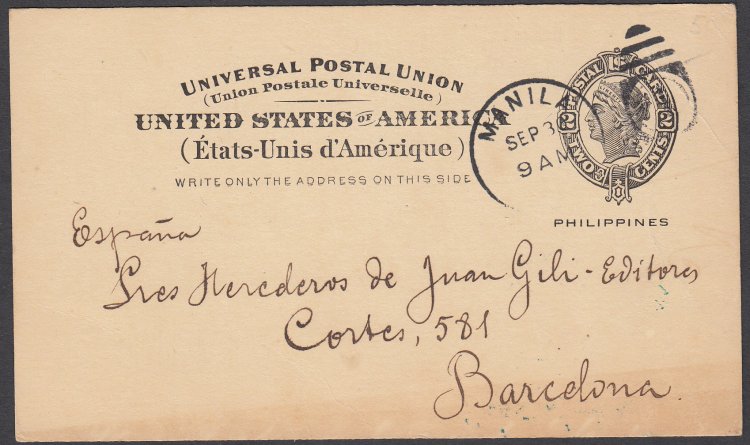 UNIVERSAL POSTAL UNION
(Union Postale Universelle)
UNITED STATES OF AMERICA
(États-Unis d'Amérique)
WRITE ONLY THE ADDRESS ON THIS SIDE
POSTAL CARD
2 2
TWO CENTS
PHILIPPINES
MANILA
SEP 3
9 AM
España
Sres Herederos de Juan Gili-Editores
Cortes, 581
Barcelona